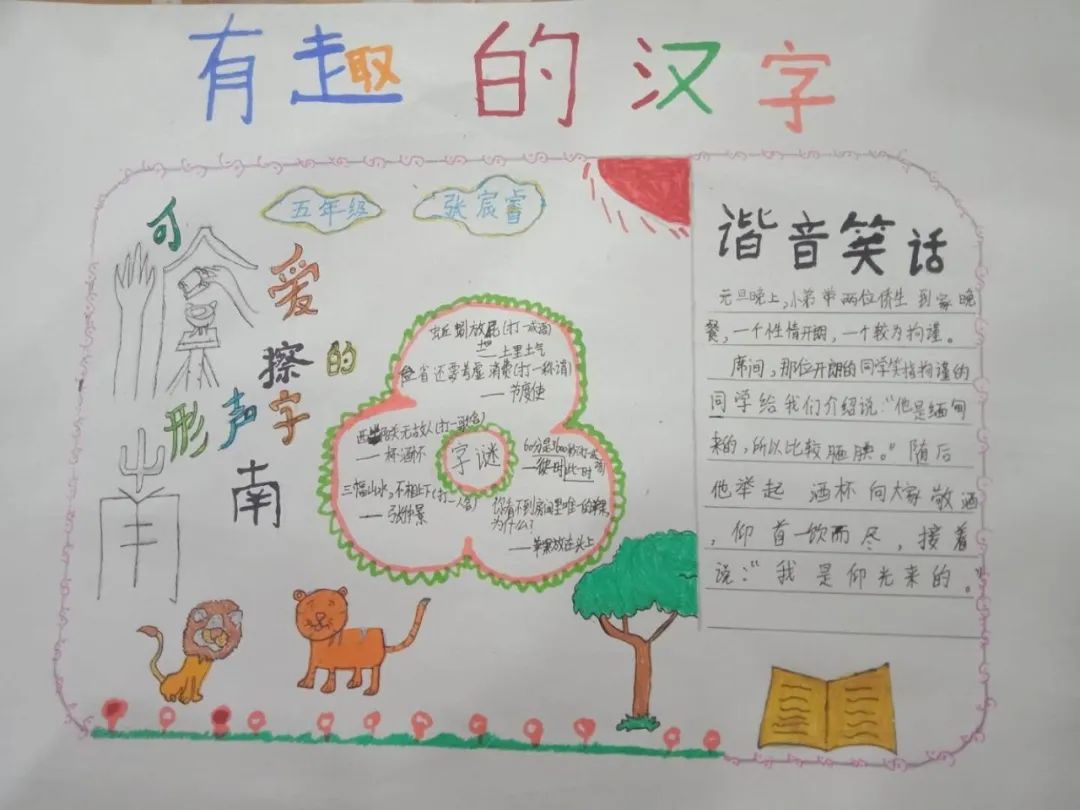 有趣的汉字
五年级
张宸睿
可爱的
形声字
擦
南
字谜
蚯蚓放屁(打一成语)
——土里土气
省 还要考虑 消费(打一称谓)
——节度使
无故人(打一歌名)
三幅山水,不相上下(打一人名)
——张仲景
——彼时此时
你看不到房间里唯一的苹果
为什么?
——苹果放在头上
谐音笑话
元旦晚上,小弟弟两位侨生 到家晚
餐,一个性情开朗,一个较为拘谨。
席间,那位开朗的同学笑指拘谨的
同学给我们介绍说:“他是缅甸
来的,所以比较腼腆。”随后
他举起 酒杯向大家敬酒
,仰首一饮而尽,接着
说:“我是仰光来的。”